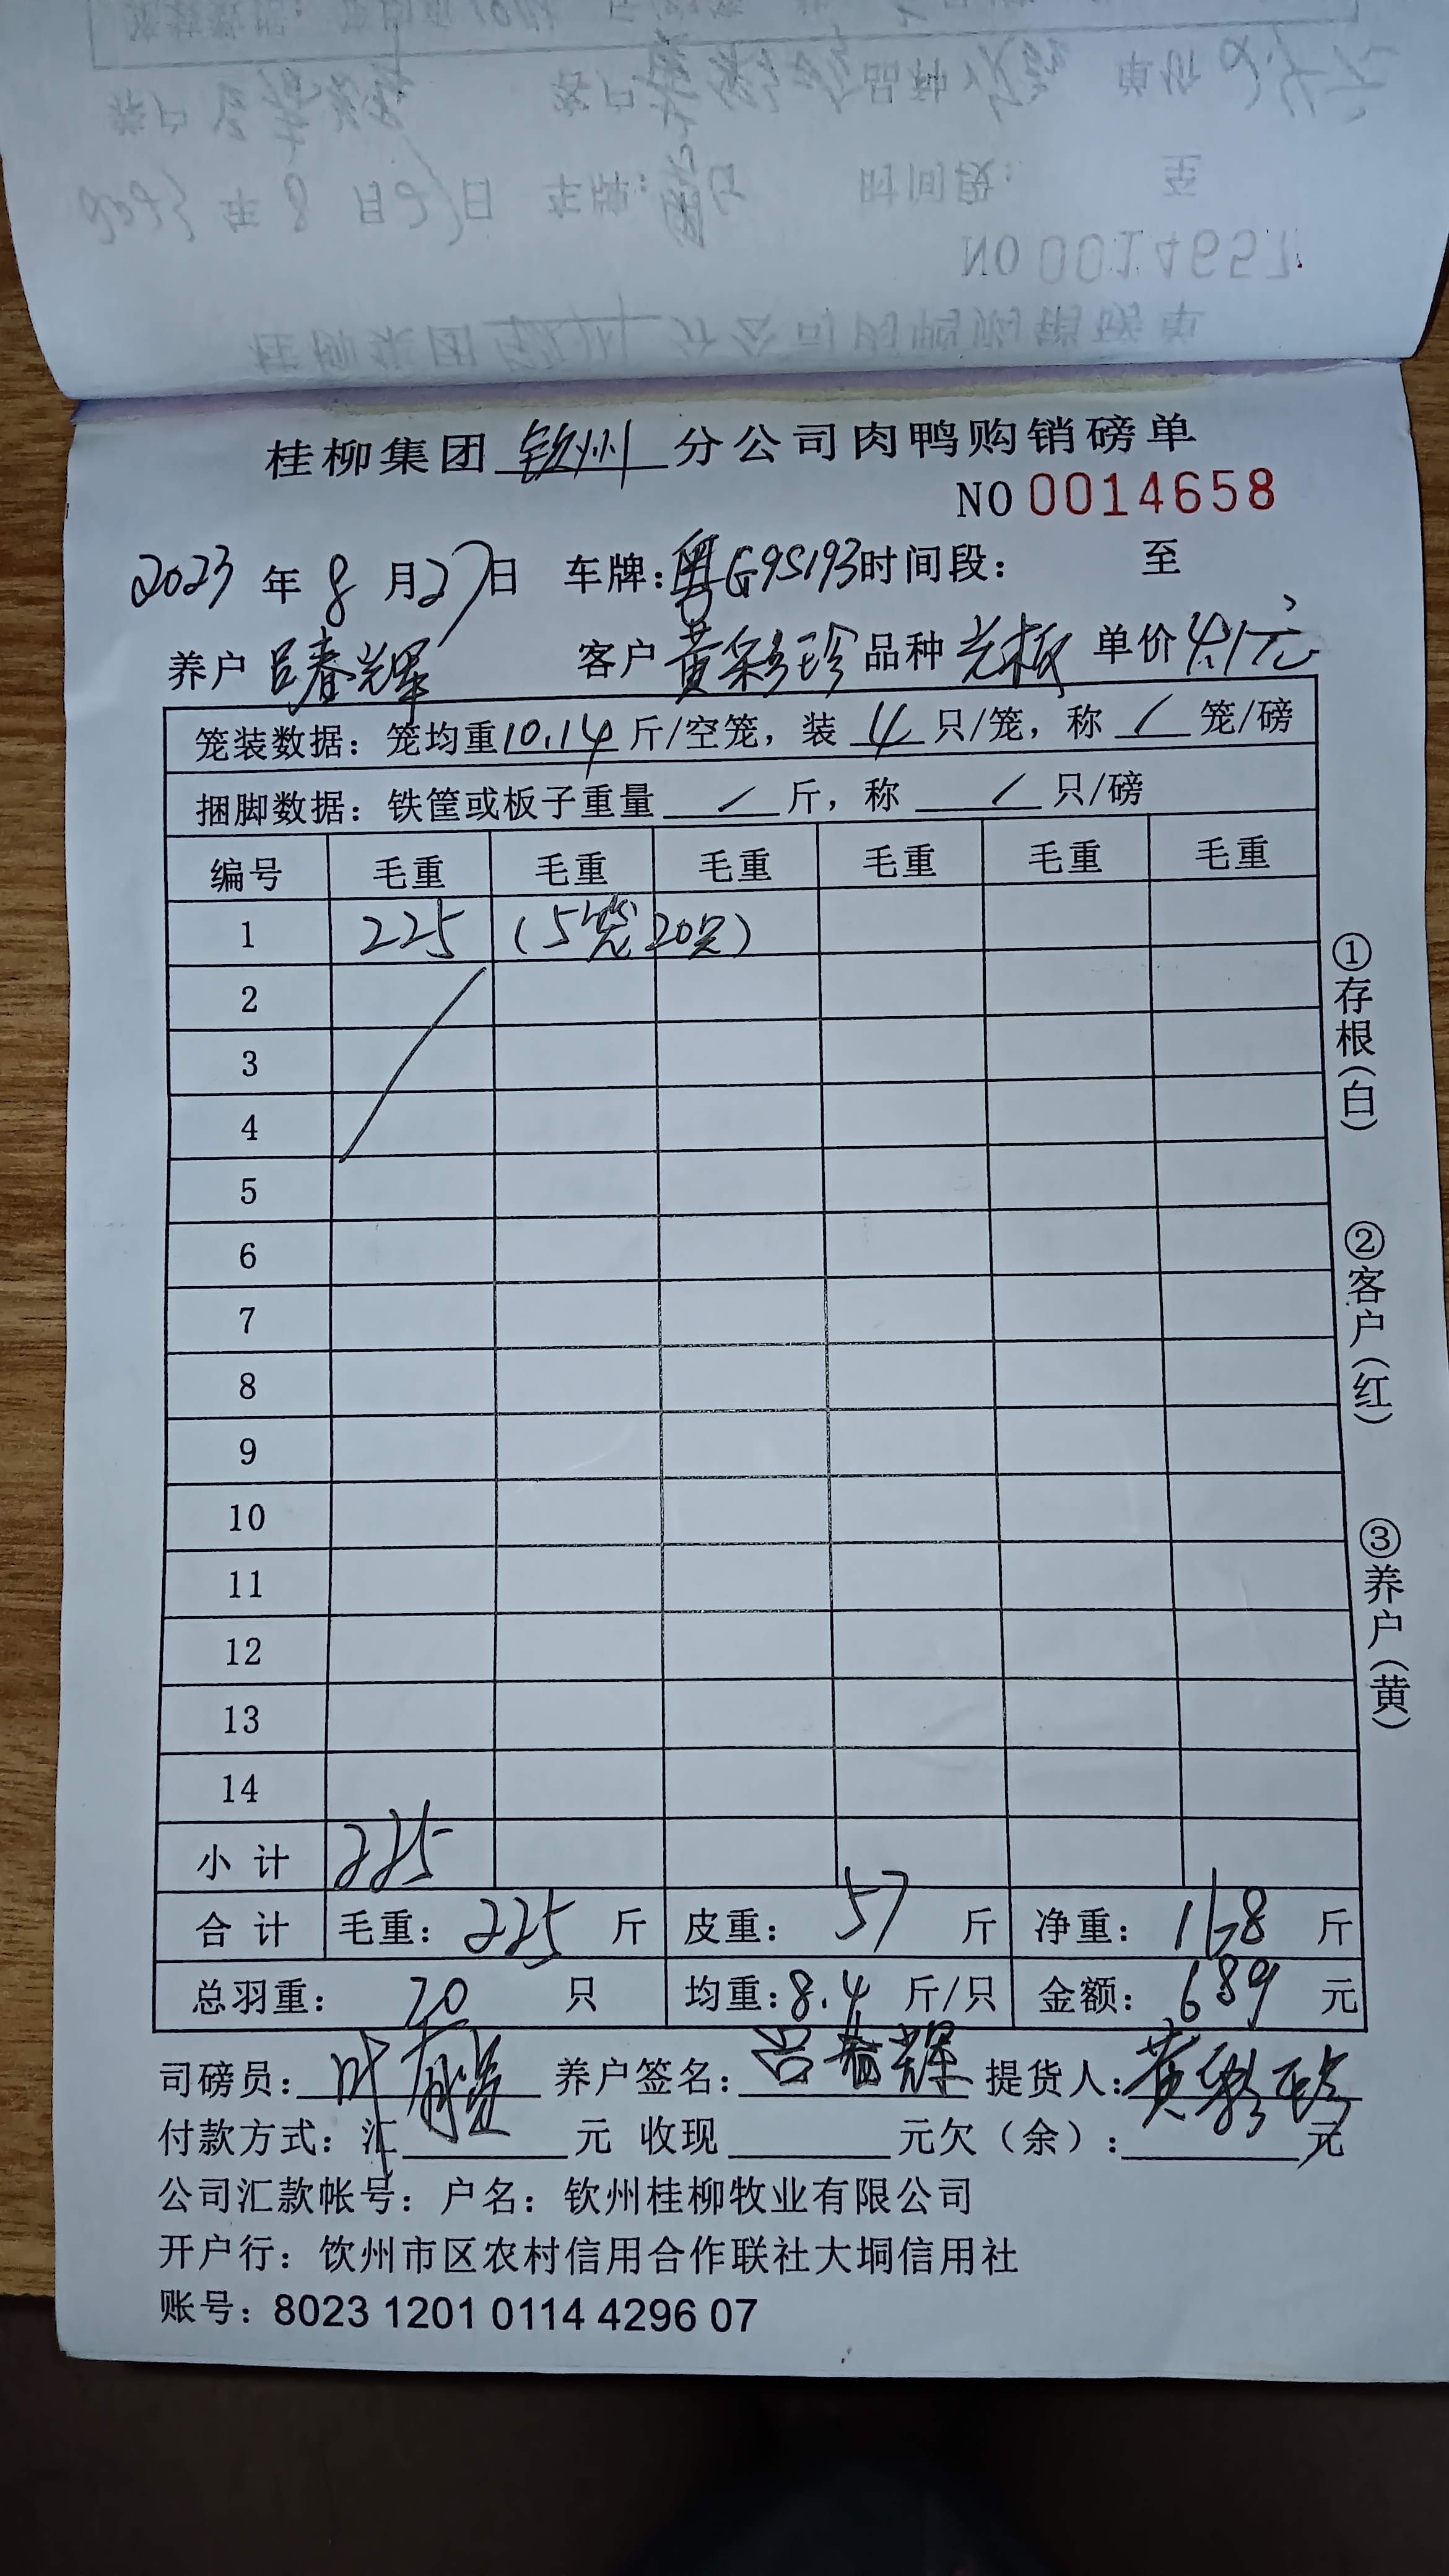 桂柳集团 钦州 分公司肉鸭购销磅单
NO 0014658
2023 年 8 月 27 日 车牌:粤G95193 时间段: 至
养户 吕春辉 客户 黄彩珍 品种 光板 单价 4.1元
笼装数据:笼均重 10.14 斤/空笼,装 4 只/笼,称 / 笼/磅
捆脚数据:铁筐或板子重量 / 斤,称 / 只/磅
编号 毛重 毛重 毛重 毛重 毛重 毛重
1 225 (5笼 20只)
2
3
4
5
6
7
8
9
10
11
12
13
14
小 计 225
合 计 毛重: 225 斤 皮重: 57 斤 净重: 168 斤
总羽重: 20 只 均重: 8.4 斤/只 金额: 689 元
司磅员: 叶 养户签名: 吕春辉 提货人: 黄彩珍
付款方式:汇 元 收现 元欠(余): 元
公司汇款帐号:户名:钦州桂柳牧业有限公司
开户行:钦州市区农村信用合作联社大垌信用社
账号:8023 1201 0114 4296 07
①存根(白)
②客户(红)
③养户(黄)